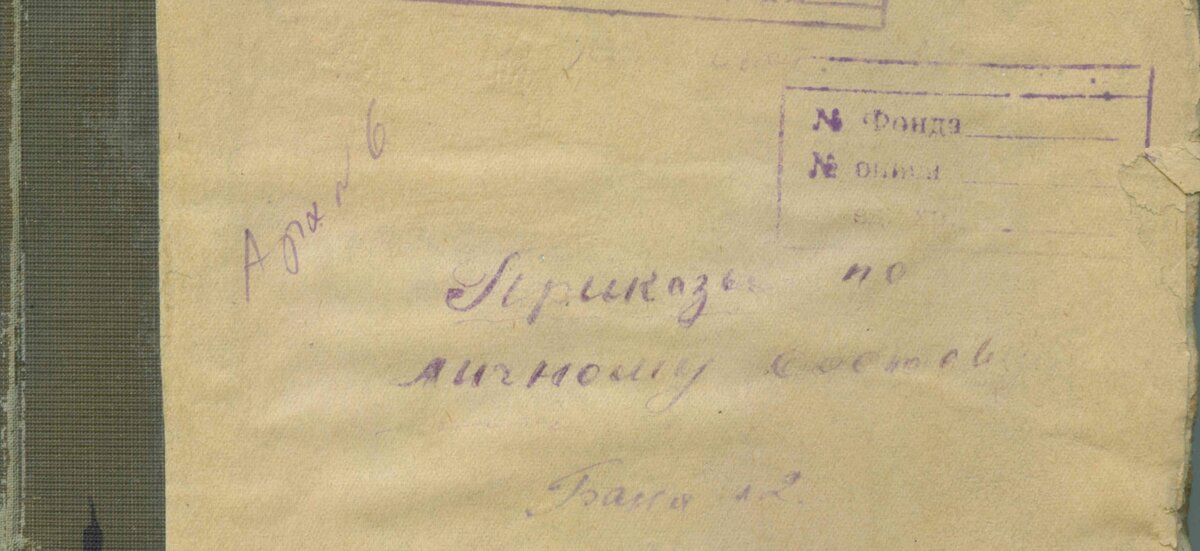 № Фонда
№ описи
Арх № 6
Приказы по
личному состав
Баня №2